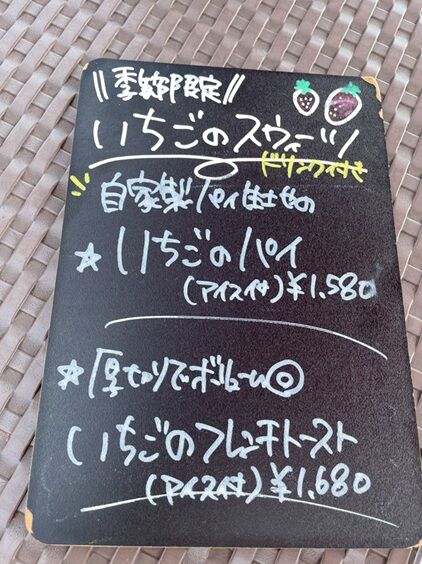 \\季節限定//
いちごのスウィーツ
ドリンク付き
自家製パイ生地の
☆いちごのパイ
(アイス付)¥1.580
☆厚切りでボリューム◎
いちごのフレンチトースト
(アイス付)¥1.680